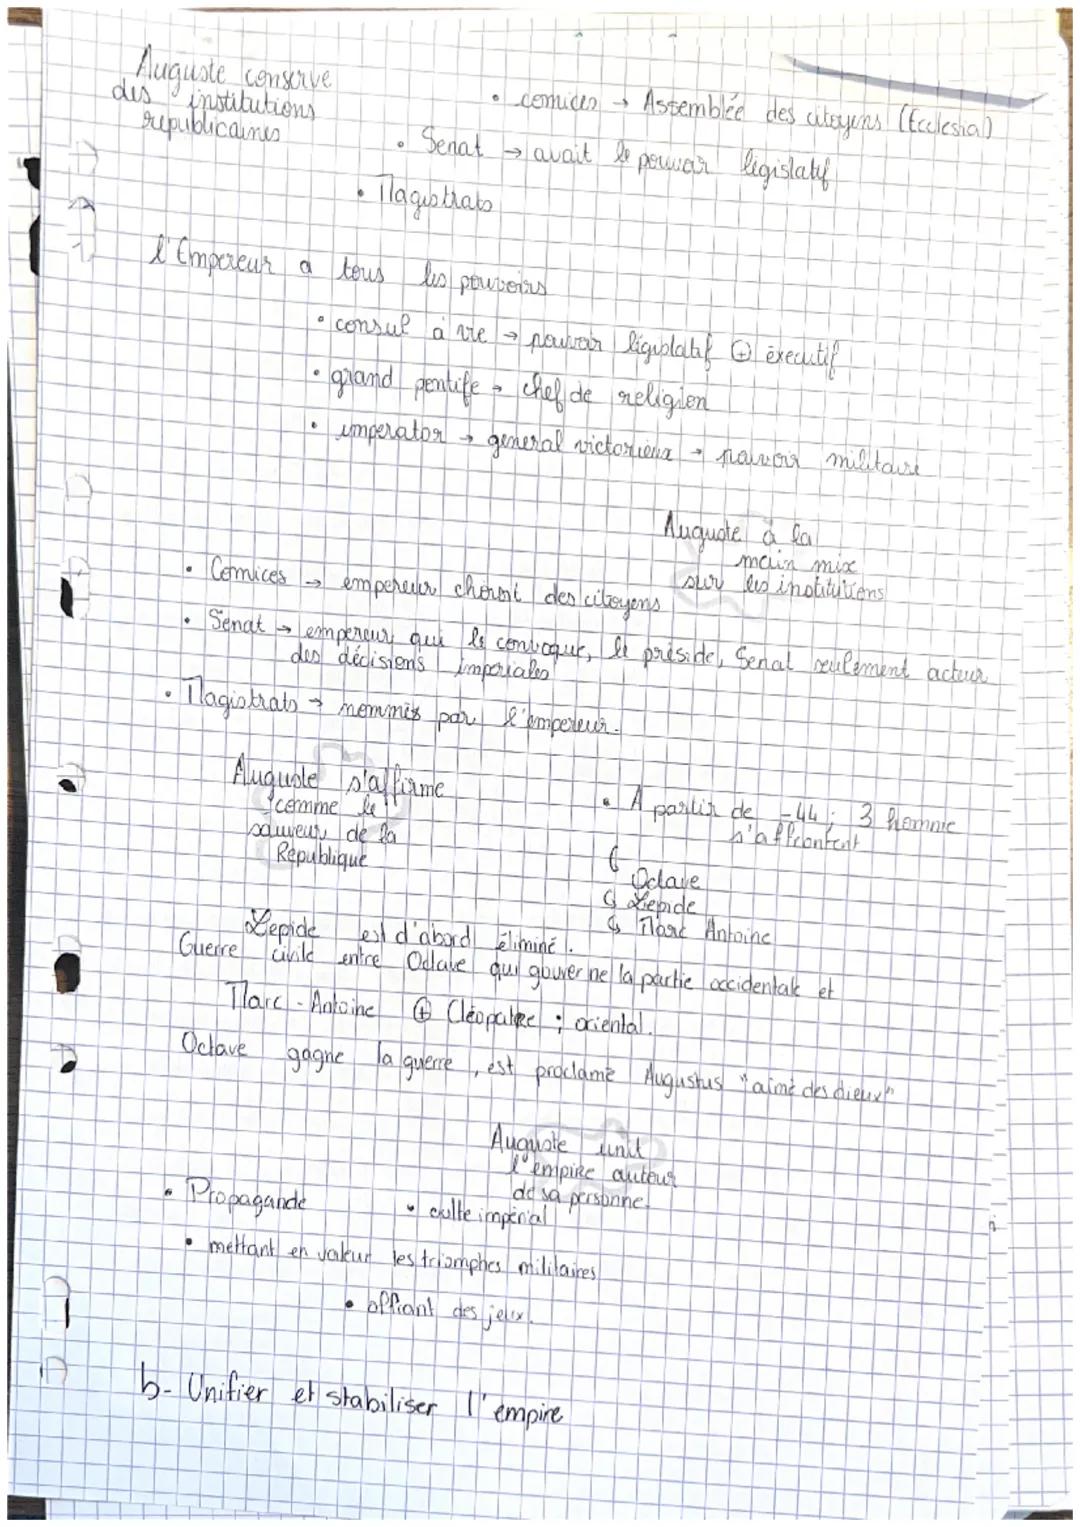 Auguste conserve
des institutions
républicaines
• comices → Assemblée des citoyens (Ecclesia)
• Senat → avait le pouvoir législatif
• Magistrats
l'Empereur a tous les pouvoirs
• consul à vie → pouvoir législatif ⊕ éxecutif
• grand pontife → chef de religion
• imperator → general victorieux → pouvoir militaire
Auguste à la
main mix
sur les institutions
• Comices → empereur choisit des citoyens
• Sénat → empereur qui le convoque, le préside, Senat seulement acteur
des décisions imperiales
• Magistrats → nommés par l'empereur.
Auguste s'affirme
comme le
sauveur de la
République
• A partir de -44 ; 3 homme
s'affrontent
↳ Octave
↳ Lepide
↳ Marc Antoine
Lepide est d'abord éliminé.
Guerre civile entre Octave qui gouverne la partie occidentale et
Marc-Antoine ⊕ Cléopatre ; oriental.
Octave gagne la guerre, est proclamé Augustus "aimé des dieux"
Auguste unit
l'empire autour
de sa personne.
• Propagande
• culte impérial
• mettant en valeur les triomphes militaires
• offrant des jeux.
b- Unifier et stabiliser l'empire